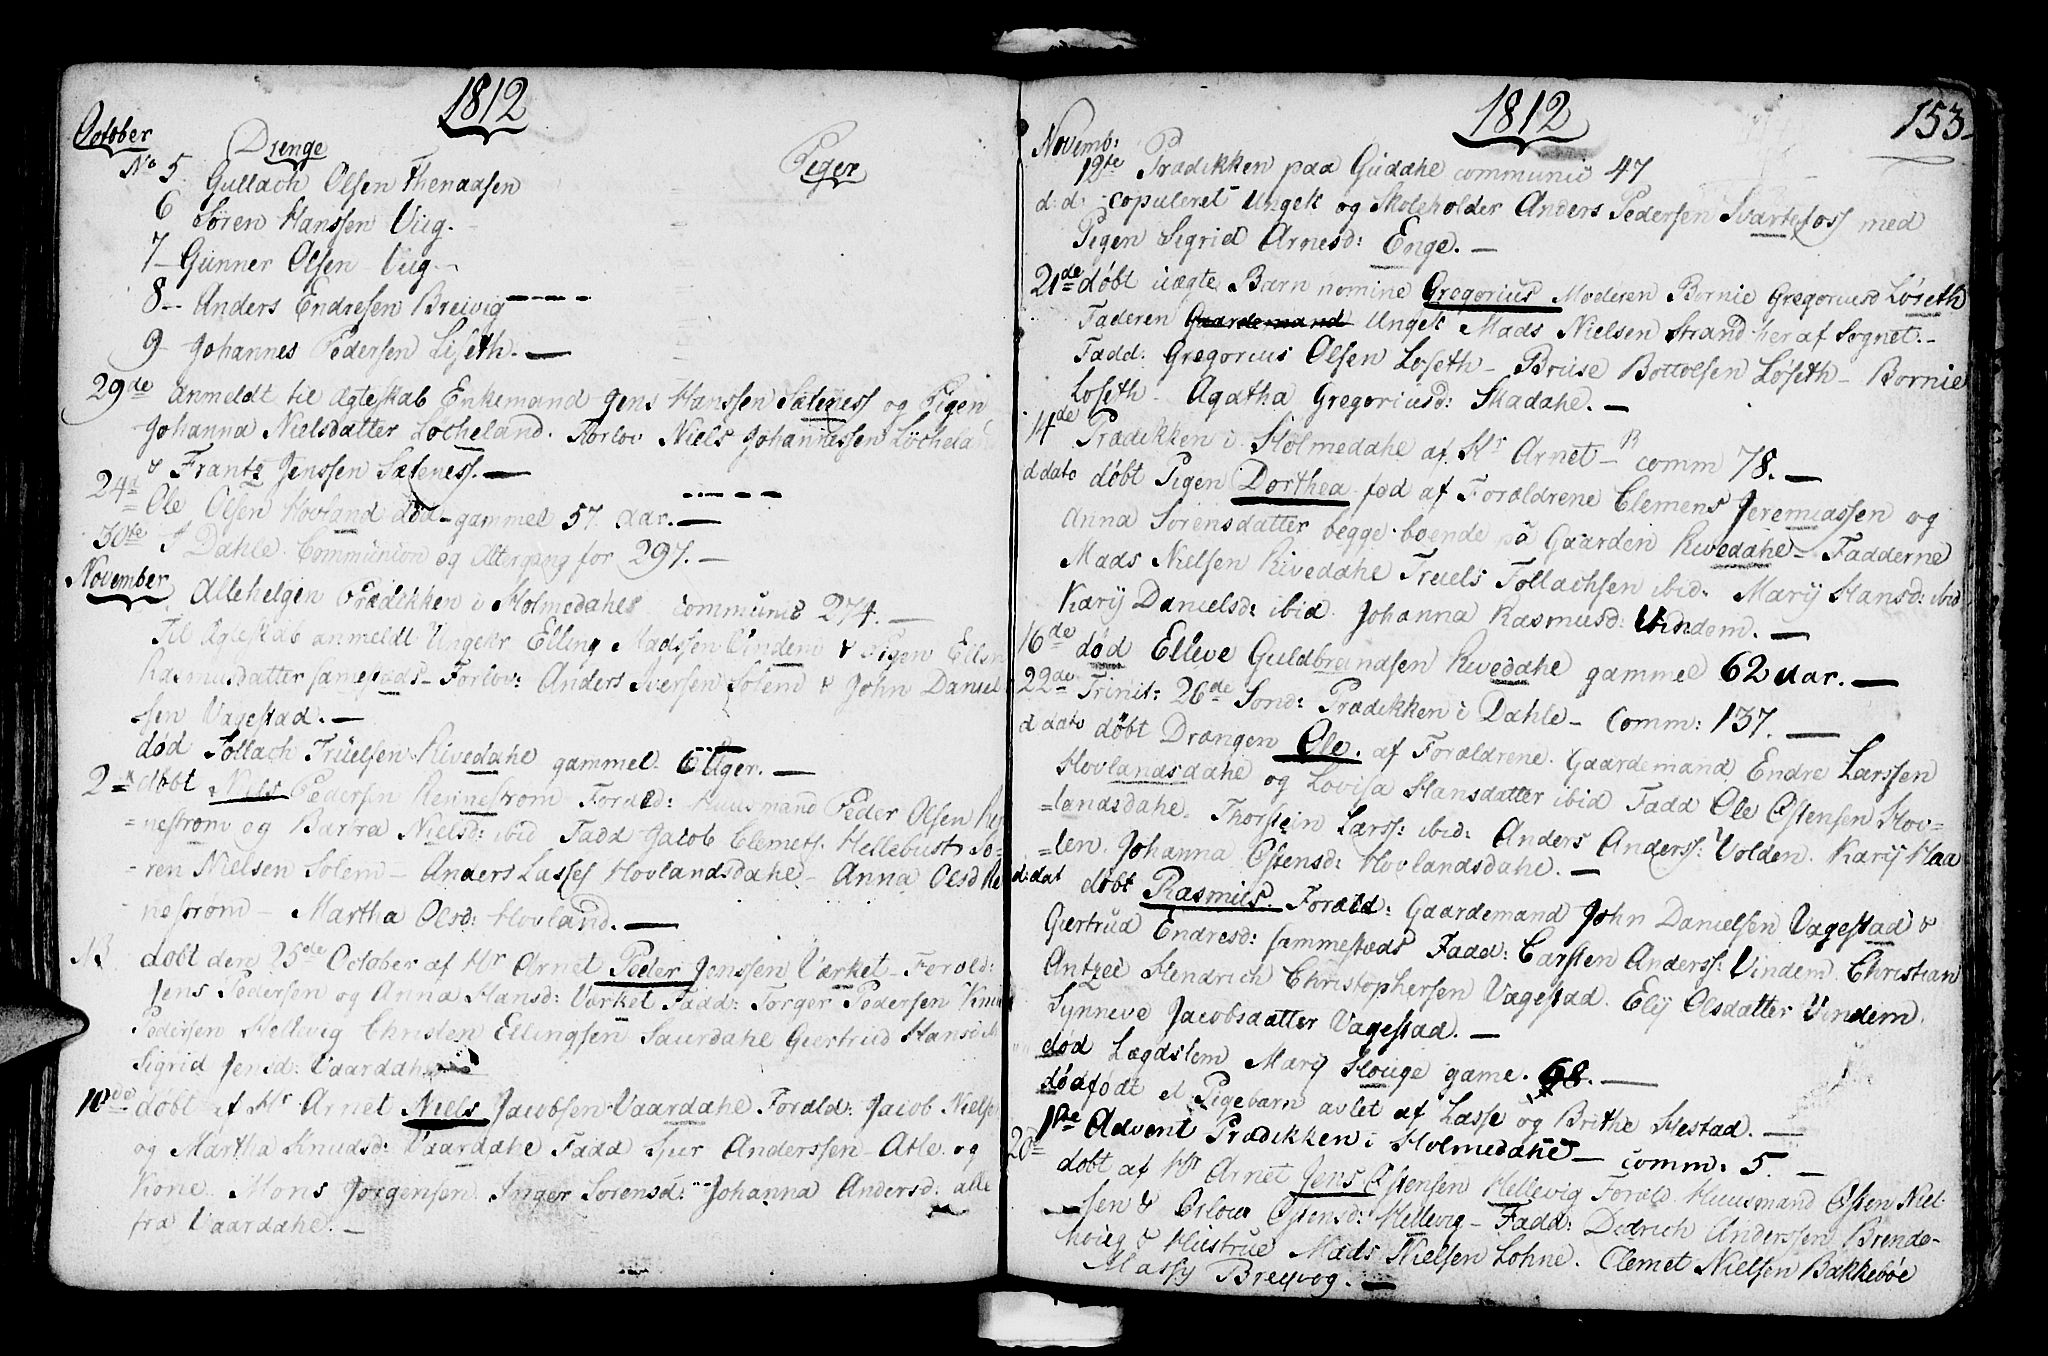 1812
October
Drenge
Piger
No 5. Gullach Olsen Thenaasen
6 Søren Hanssen Viig.
7 – Gunner Olsen – Viig –
8 – Anders Endresen Breivig
9 – Johannes Pedersen Liseth. –
29de Anmeldt til Ægteskab Enkemand Jens Hanssen Sæteness og Pigen
Johanna Nielsdatter Løcheland. Forlov Niels Johannessen
& Frantz Jenssen Sæteness. –
24d Ole Olsen Hovland død – gammel 57. Aar. –
30te I Dahle Communion og Altergang for 297. –
November Allehelgen Prædikken i Holmedahls communic 274. –
Til Ægteskab anmeldt Ungekr Elling Madssen Vindem & Pigen Ellen
Rasmusdatter samestads – Forlov: Anders Iversen Solem & John Daniel
sen Vagestad. –
død Tollach Truelsen Rivedahl gammel 6 Uger. –
2n døbt Niels Pedersen Rennestrøm Foræld: Huusmand Peder Olsen Re
=nestrøm og Barbra Nielsd: ibid Fadd Jacob Clemets. Hellebust Sø-
-ren Nielsen Solem – Anders Lasses Hovlandsdahl – Anna Olsd Re
nestrøm – Martha Olsd: Hovland. –
13 døbt den 25de October af Hr Arnet Peder Jenssen Værket – Foræld:
Jens Pedersen og Anna Hansd: Værket Fadd: Torger Pedersen
Pedersen Hellevig Christen Ellingsen Saurdahl Giertrud Hansd
Sigrid Jensd: Vaardahl
døbt af Hr Arnet Niels Jacobsen Vaardahl Foræld: Jacob Nielse
og Martha Knudsd: Vaardahl Fadd Siur Anderssen – Atle og
Kone. Mons Jørgensen Inger Sørensd: Johanna Andersd: alle
fra Vaardahl. –
1812
153
Novemb: 12te Prædikken paa Guddahl communic 47
d:d: copuleret Ungek og Skoleholder Anders Pedersen Svartefoss med
Pigen Sigrid Arnesd: Enge. –
21de døbt uægte Barn nomine Gregorius Moderen Bornie Gregoriusd Løseth
Faderen Gaardemand Ungek Mads Nielsen Strand her af Sognet. –
Fadd: Gregorius Olsen Løseth – Bruse Bottolsen Løseth – Bornie
Løseth – Agatha Gregoriusd: Skadahl. –
14de Prædikken i Holmedahl af Hr Arnet – comm 78. –
d dato døbt Pigen Dorthea fød af Forældrene Clemens Jeremiassen og
Anna Sørensdatter begge boende på Gaarden Rivedahl – Fadderne
Mads Nielsen Rivedahl Truels Tollachsen ibid. Marij Hansd: ibid
Karij Danielsd: ibid. Johanna Rasmusd: Vindem. –
16de død Elleve Guldbrandsen Rivedahl gammel 62 Aar. –
22de Trinit: 26de Sønd: Prædikken i Dahle – Comm: 137. –
d dato døbt Drængen Ole. af Forældrene. Gaardemand Endre Larssen
Hovlandsdahl og Lovisa Hansdatter ibid Fadd Ole Østensen Hov=
=landsdahl. Thorstein Larss: ibid: Anders Anderss: Volden. Karij Haa
=len. Johanna Østensd: Hovlandsdahl. –
d. dat døbt Rasmus. Foræld: Gaardemand John Danielsen Vagestad &
Giertrud Endresd: sammestæds Fadd: Carsten Anderss: Vindem. Christian
Antzee Hendrich Christophersen Vagestad. Elij Olsdatter Vindem.
Synneve Jacobsdatter Vagestad. –
død Lægdslem Marij Houge game. 68. –
dødfødt et Pigebarn avlet af Lasse og Brithe Hestad. –
1ste Advent Prædikken i Holmedahl – comm: 5. –
20d døbt af Hr Arnet Jens Østensen Hellevig Foræld Huusmand Østen Niel-
sen & Østensd: Hellevig – Fadd: Didrich Anderssen Brende-
& Hustrue Mads Nielsen Lohne. Clemet Nielsen Bakkebøe